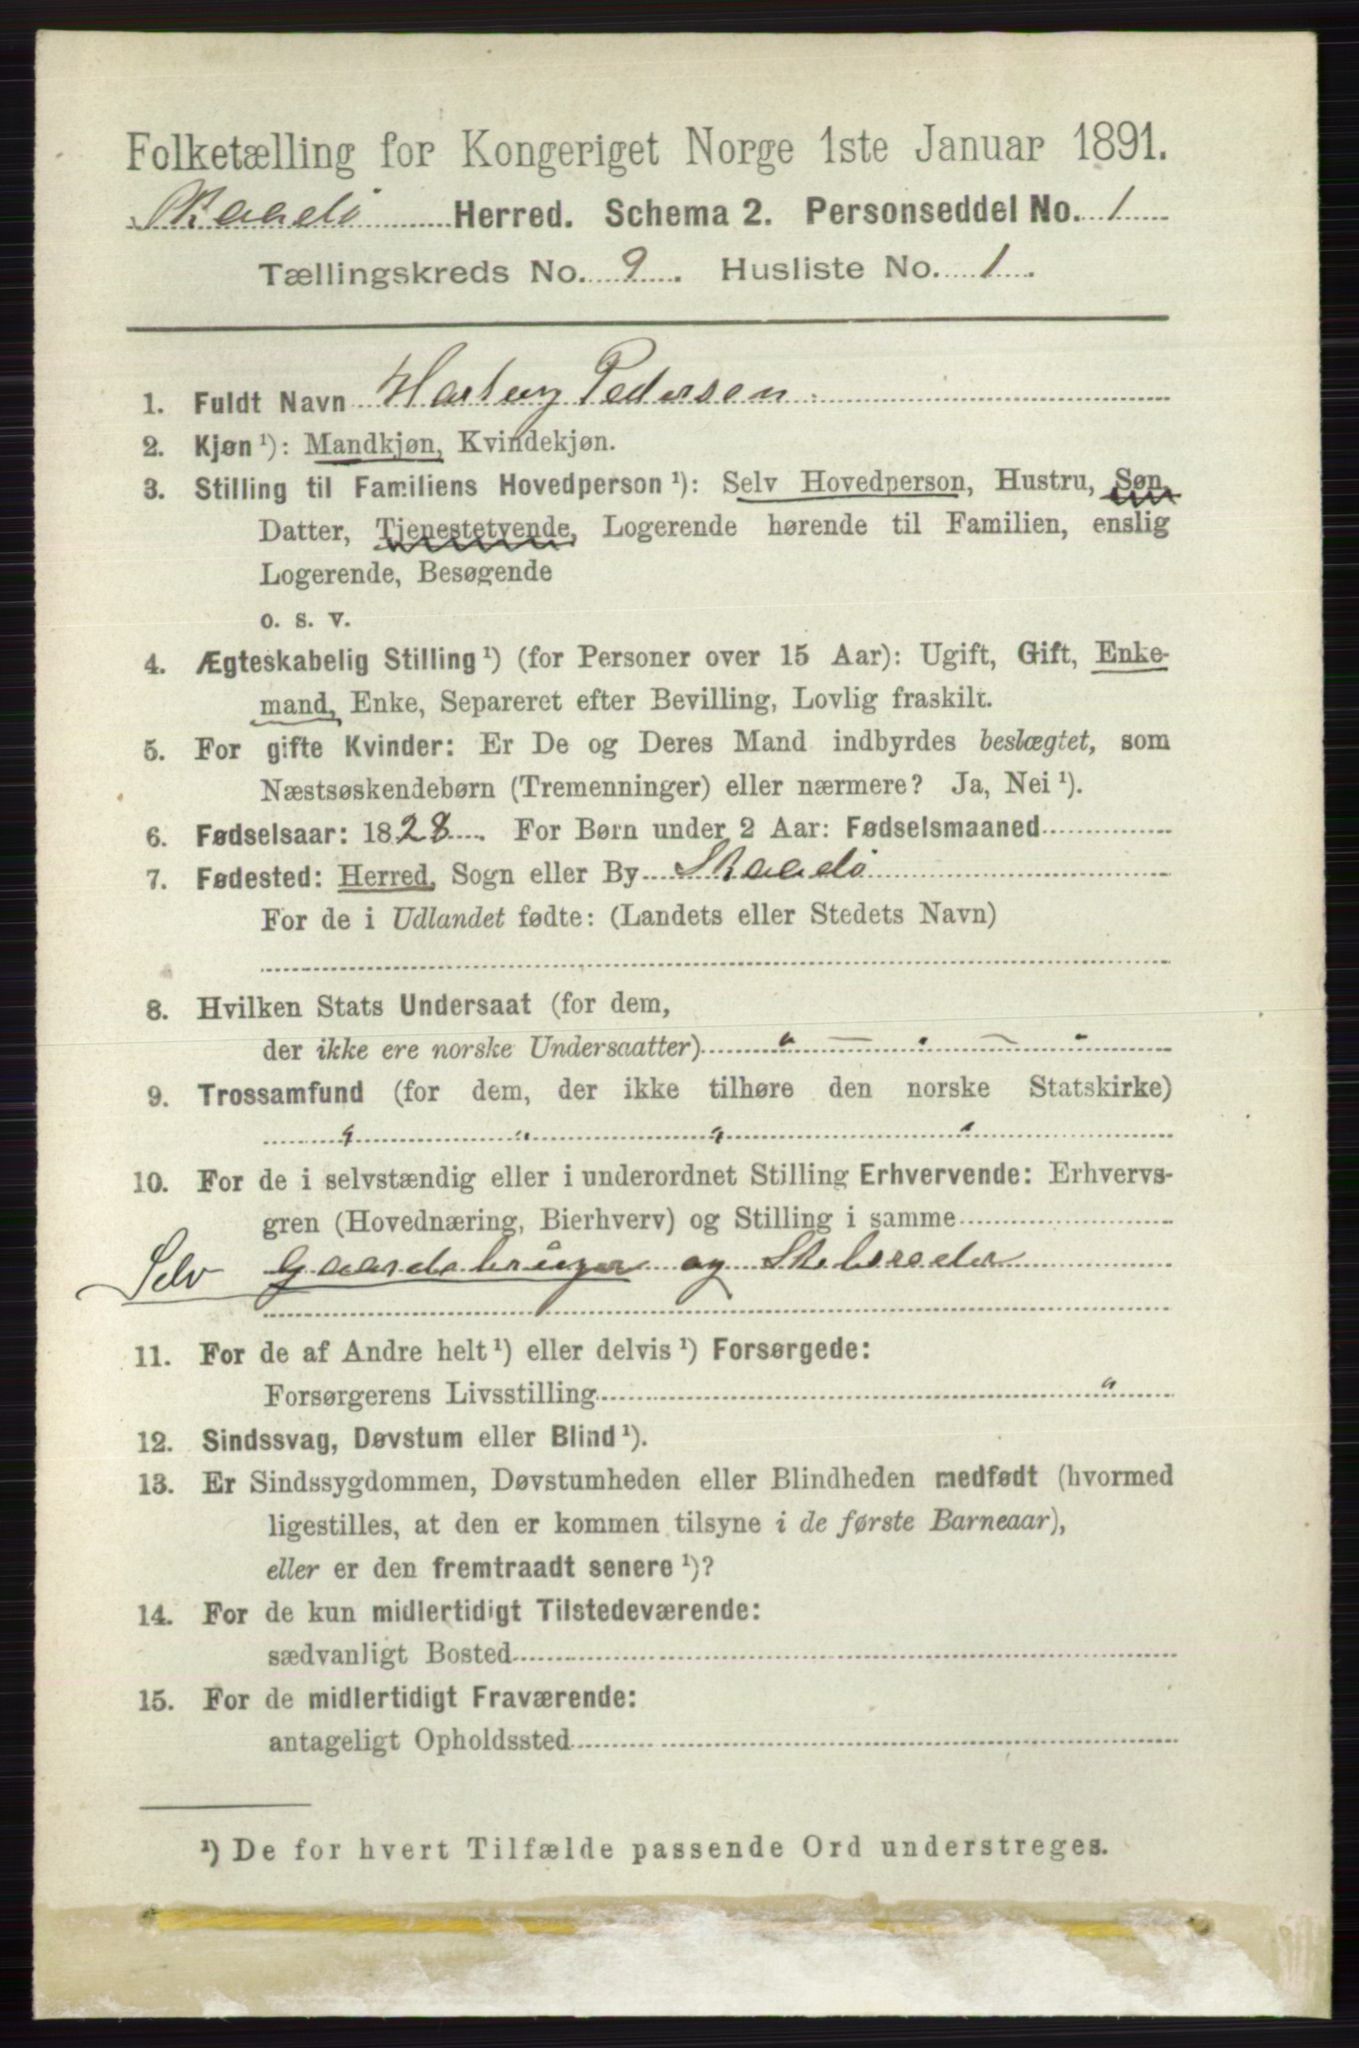 Folketælling for Kongeriget Norge 1ste Januar 1891.
Skaadø Herred. Schema 2. Personseddel No. 1
Tællingskreds No. 9. Husliste No. 1.
1. Fuldt Navn Hartvig Pedersen.
2. Kjøn ¹): Mandkjøn, Kvindekjøn.
3. Stilling til Familiens Hovedperson ¹): Selv Hovedperson, Hustru, Søn,
Datter, Tjenestetyende, Logerende hørende til Familien, enslig
Logerende, Besøgende
o. s. v.
4. Ægteskabelig Stilling ¹) (for Personer over 15 Aar): Ugift, Gift, Enke-
mand, Enke, Separeret efter Bevilling, Lovlig fraskilt.
5. For gifte Kvinder: Er De og Deres Mand indbyrdes beslægtet, som
Næstsøskendebørn (Tremenninger) eller nærmere? Ja, Nei ¹).
6. Fødselsaar: 1828. For Børn under 2 Aar: Fødselsmaaned
7. Fødested: Herred, Sogn eller By Skaadø
For de i Udlandet fødte: (Landets eller Stedets Navn)
8. Hvilken Stats Undersaat (for dem,
der ikke ere norske Undersaatter) " — " — "
9. Trossamfund (for dem, der ikke tilhøre den norske Statskirke)
" " " "
10. For de i selvstændig eller i underordnet Stilling Erhvervende: Erhvervs-
gren (Hovednæring, Bierhverv) og Stilling i samme
Selv Gaardebruger og Skibsreder
11. For de af Andre helt ¹) eller delvis ¹) Forsørgede:
Forsørgerens Livsstilling "
12. Sindssvag, Døvstum eller Blind ¹).
13. Er Sindssygdommen, Døvstumheden eller Blindheden medfødt (hvormed
ligestilles, at den er kommen tilsyne i de første Barneaar),
eller er den fremtraadt senere ¹)?
14. For de kun midlertidigt Tilstedeværende:
sædvanligt Bosted
15. For de midlertidigt Fraværende:
antageligt Opholdssted
¹) De for hvert Tilfælde passende Ord understreges.